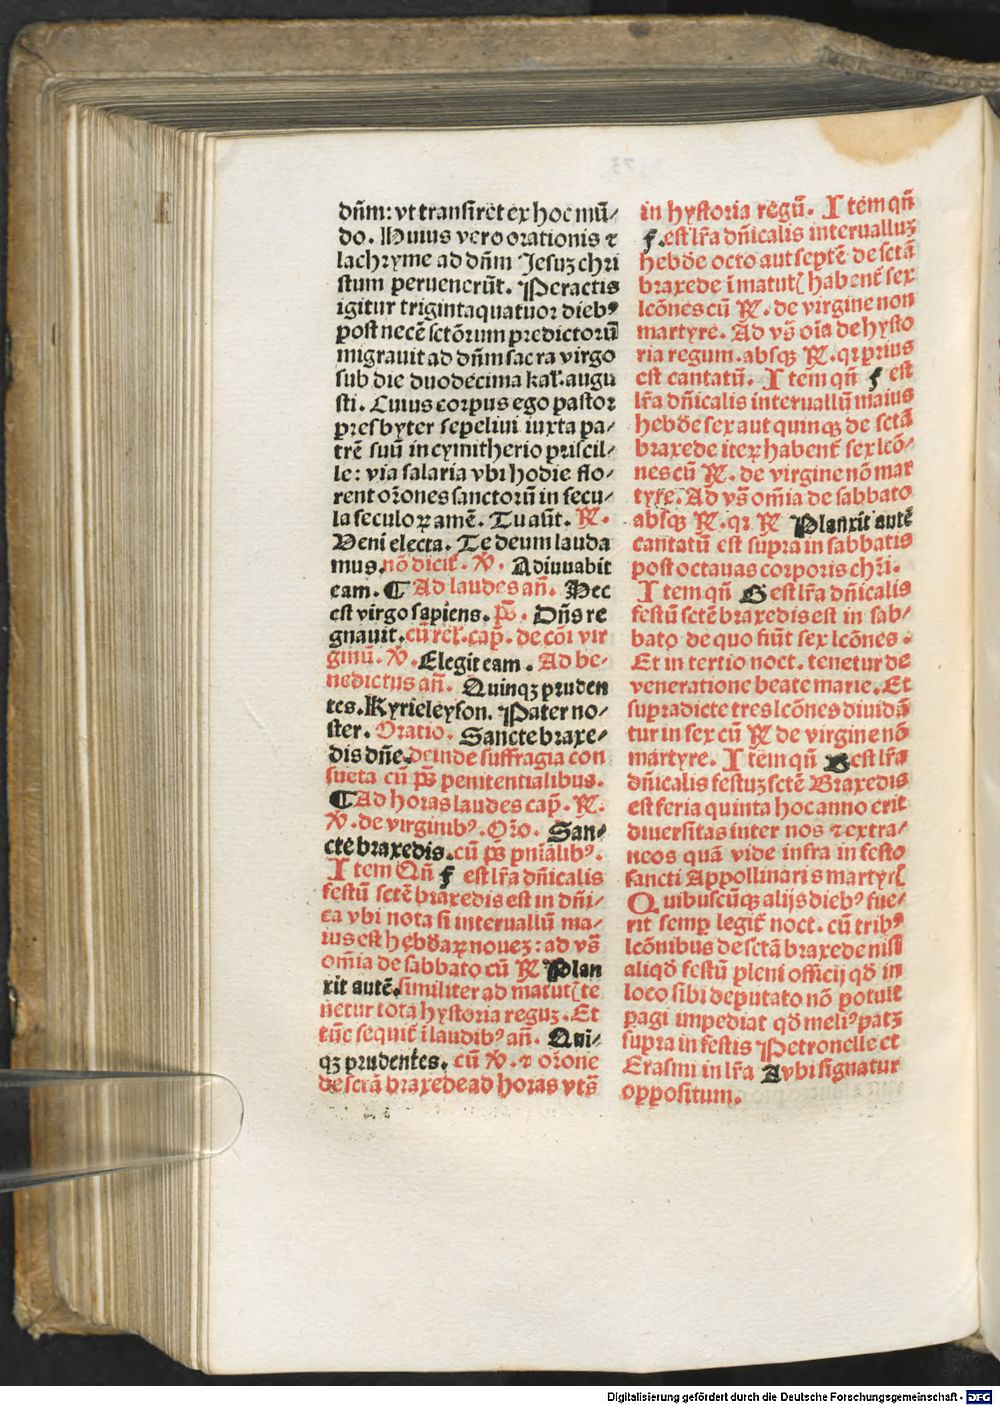 dn̄m: vt transiret ex hoc mū⸗
do. Huius vero orationis ⁊
lachryme ad dn̄m Jesuꝫ chri
stum peruenerūt. Peractis
igitur trigintaquatuor diebꝰ
post necē sctōrum predictorū
migrauit ad dn̄m sacra virgo
sub die duodecima kal̄. augu
sti. Cuius corpus ego pastor
presbyter sepeliui iuxta pa⸗
trē suū in cymitherio priscil⸗
le: via salaria vbi hodie flo⸗
rent or̄ones sanctorū in secu⸗
la seculoꝝ amē. Tu aūt. ℟.
Veni electa. Te deum lauda
mus. nō dicit̄. ℣. Adiuuabit
eam. ¶ Ad laudes an̄. Hec
est virgo sapiens. p̄s. Dn̄s re
gnauit. cū rel̄. cap̄. de cōi vir
ginū. ℣. Elegit eam. Ad be⸗
nedictus an̄. Quinqꝫ pruden
tes. Kyrieleyson. Pater no⸗
ster. Oratio. Sancte braxe⸗
dis dn̄e. deinde suffragia con
sueta cū p̄s penitentialibus.
¶ Ad horas laudes cap̄. ℟.
℣. de virginibꝰ. Or̄o. San⸗
cte braxedis. cū p̄s pn̄ialibꝰ.
Item Qn̄ f est lr̄a dn̄icalis
festū sctē braxedis est in dn̄i⸗
ca vbi nota si interuallū ma⸗
ius est hebd̄aꝝ noueꝫ: ad vs̄
om̄ia de sabbato cū ℟ Plan
xit autē. similiter ad matut̄ te
netur tota hystoria reguꝫ. Et
tūc sequit̄ ī laudibꝰ an̄. Qui⸗
qꝫ prudentes. cū ℣. ⁊ or̄one
de sctā braxede ad horas vts̄
in hystoria regū. Item qn̄
f. est lr̄a dn̄icalis interualluꝫ
hebd̄e octo aut septē de sctā
braxede ī matut̄ habent̄ sex
lcōnes cū ℟. de virgine non
martyre. Ad vs̄ oīa de hysto
ria regum. absqꝫ ℟. qꝛ prius
est cantatū. Item qn̄ f est
lr̄a dn̄icalis interuallū maius
hebd̄e sex aut quinqꝫ de sctā
braxede iteꝝ habent̄ sex lcō⸗
nes cū ℟. de virgine nō mar
tyre. Ad vs̄ om̄ia de sabbato
absqꝫ ℟. qꝛ ℟ Planxit autē
cantatū est supra in sabbatis
post octauas corporis chr̄i.
Item qn̄ G est lr̄a dn̄icalis
festū sctē braxedis est in sab⸗
bato de quo fiūt sex lcōnes.
Et in tertio noct. tenetur de
veneratione beate marie. Et
supradicte tres lcōnes diuidā
tur in sex cū ℟ de virgine nō
martyre. Item qn̄ B est lr̄a
dn̄icalis festuꝫ sctē Braxedis
est feria quinta hoc anno erit
diuersitas inter nos ⁊ extra⸗
neos quā vide infra in festo
sancti Appollinaris martyr̄
Quibuscūqꝫ alijs diebꝰ fue⸗
rit semꝑ legit̄ noct. cū tribꝰ
lcōnibus de sctā braxede nisi
aliqd̄ festū pleni officij qd̄ in
loco sibi deputato nō potuit
ꝑagi impediat qd̄ meliꝰ patꝫ
supra in festis Petronelle et
Erasmi in lr̄a A vbi signatur
oppositum.
Digitalisierung gefördert durch die Deutsche Forschungsgemeinschaft - DFG